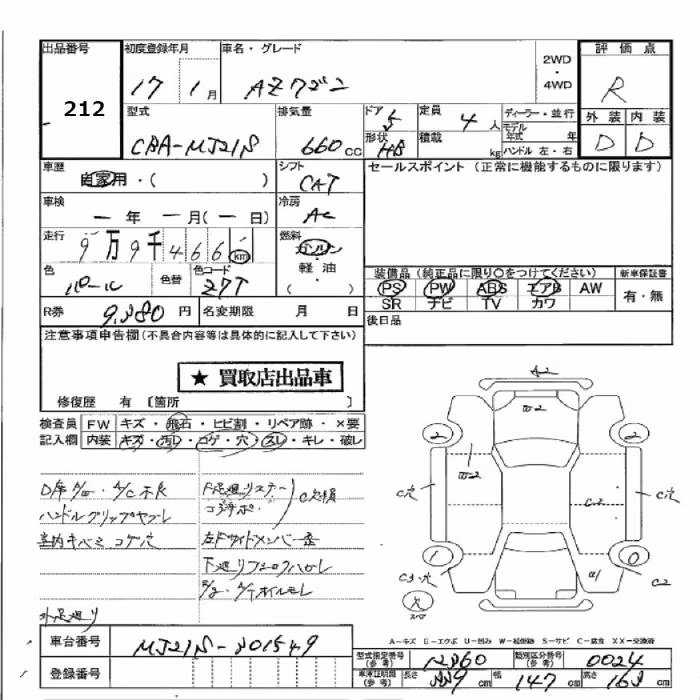 出品番号 初度登録年月 車名・グレード 2WD・4WD 評価点
212 17 1月 AZワゴン R
型式 排気量 ドア 5 定員 4人 ディーラー・並行 外装 内装
CBA-MJ21S 660cc 形状 HB 積載 kg モデル年式 年 ハンドル 左・右 D D
車歴 自家用・( ) シフト CAT セールスポイント (正常に機能するものに限ります)
車検 ー年 ー月(ー日) 冷房 AC
走行 9万9千466km 燃料 ガソリン 軽油 ( )
色 パール 色替 色コード Z7T 装備品 (純正品に限り○をつけてください) 新車保証書
PS PW ABS エアB AW 有・無
SR ナビ TV カワ
R券 9,880円 名変期限 月 日 後日品
注意事項申告欄(不具合内容等は具体的に記入して下さい)
★ 買取店出品車
修復歴 有 〔箇所 〕
検査員記入欄 FW キズ・飛石・ヒビ割・リペア跡・×要
内装 キズ・汚レ・コゲ・穴・スレ・キレ・破レ
ハンドルグリップヤブレ
室内キバミ コゲ穴
左Fサイドメンバー歪
外 足廻り
車台番号 MJ21S-801549
登録番号
A2
W2
2 2
W2
C穴 C2 C穴
1 0
C3穴 C2
A-キズ E-エクボ U-凹み W-補修跡 S-サビ C-腐食 XX-交換済
型式指定番号(参考) 12860 類別区分番号(参考) 0024
車庫証明用(参考) 長さ 339cm 幅 147cm 高さ 163cm